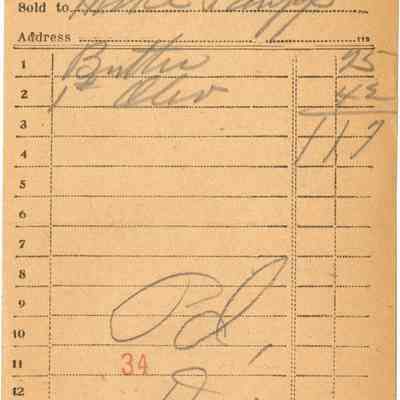 Sold to
Address
1 Butter 25
2 1# Oleo 42
3 117
4
5
6
7
8
9 Pd,
10
11 34
12